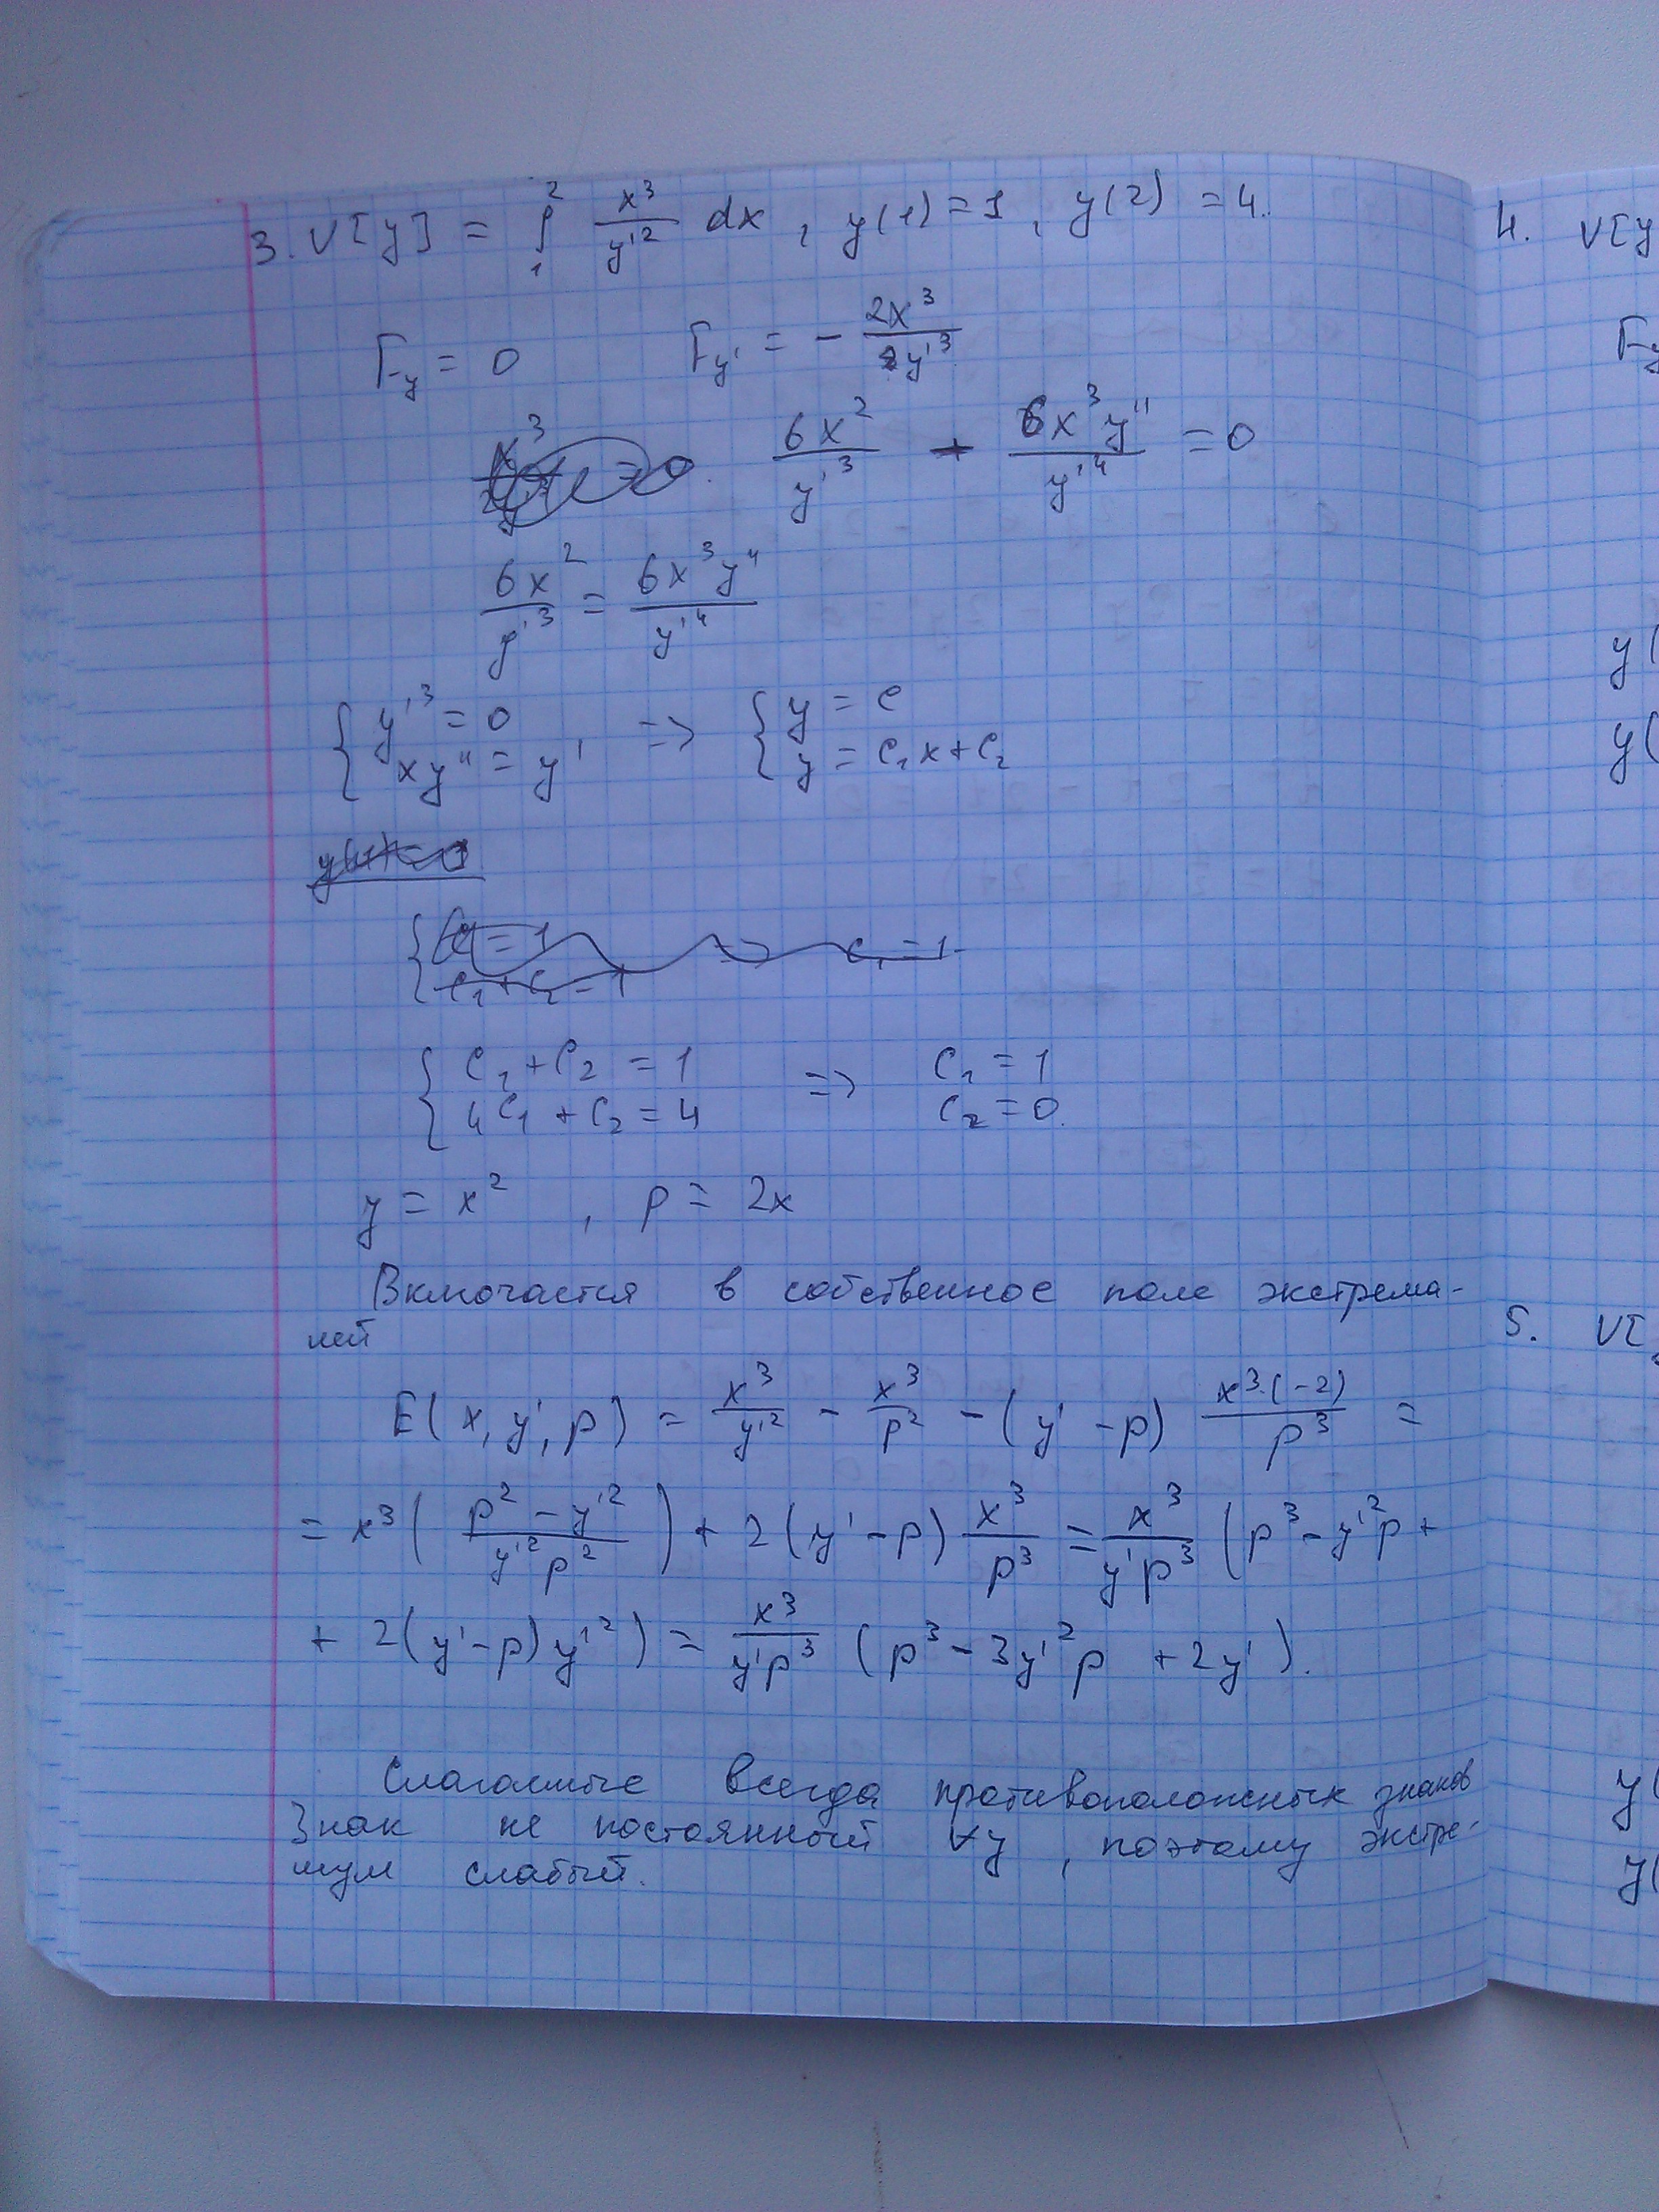 3. V[y] = ∫₁² x³/y'² dx , y(1) = 1 , y(2) = 4.
F_y = 0 F_y' = - 2x³/y'³
6x²/y'³ - 6x³y''/y'⁴ = 0
6x²/y'³ = 6x³y''/y'⁴
{ y'³ = 0 => { y = C
xy'' = y' y = C₁x + C₂
{ C₁ + C₂ = 1 => C₁ = 1
4C₁ + C₂ = 4 C₂ = 0.
y = x² , p = 2x
Включается в собственное поле экстрема-
лей
E(x, y', p) = x³/y'² - x³/p² - (y' - p) x³·(-2)/p³ =
= x³( (p² - y'²)/(y'²p²) ) + 2(y' - p) x³/p³ = x³/(y'p³) (p³ - y'²p +
+ 2(y' - p)y'²) = x³/(y'p³) (p³ - 3y'²p + 2y').
Слагаемые всегда противоположных знаков
Знак не постоянный ∀y , поэтому экстре-
мум слабый.
4. V[y
F_y
y(
y(
5. V[
y(
y(